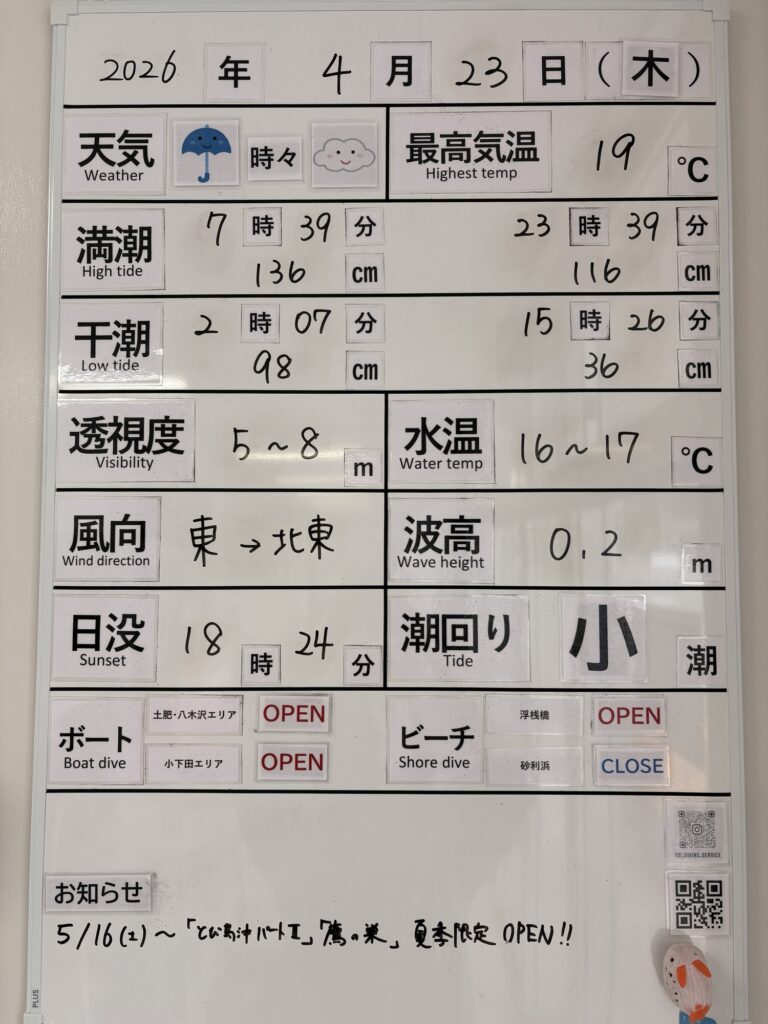 2026 年 4 月 23 日 (木)
天気 時々 最高気温 19 ℃
Weather Highest temp
満潮 7 時 39 分 23 時 39 分
High tide 136 cm 116 cm
干潮 2 時 07 分 15 時 26 分
Low tide 98 cm 36 cm
透視度 5～8 m 水温 16～17 ℃
Visibility Water temp
風向 東→北東 波高 0.2 m
Wind direction Wave height
日没 18 時 24 分 潮回り 小 潮
Sunset Tide
ボート 土肥・八木沢エリア OPEN ビーチ 浮桟橋 OPEN
Boat dive 小下田エリア OPEN Shore dive 砂利浜 CLOSE
TOI_DIVING_SERVICE
お知らせ
5/16(土)～「とび島沖パートⅡ」「鷹の巣」夏季限定 OPEN!!
PLUS